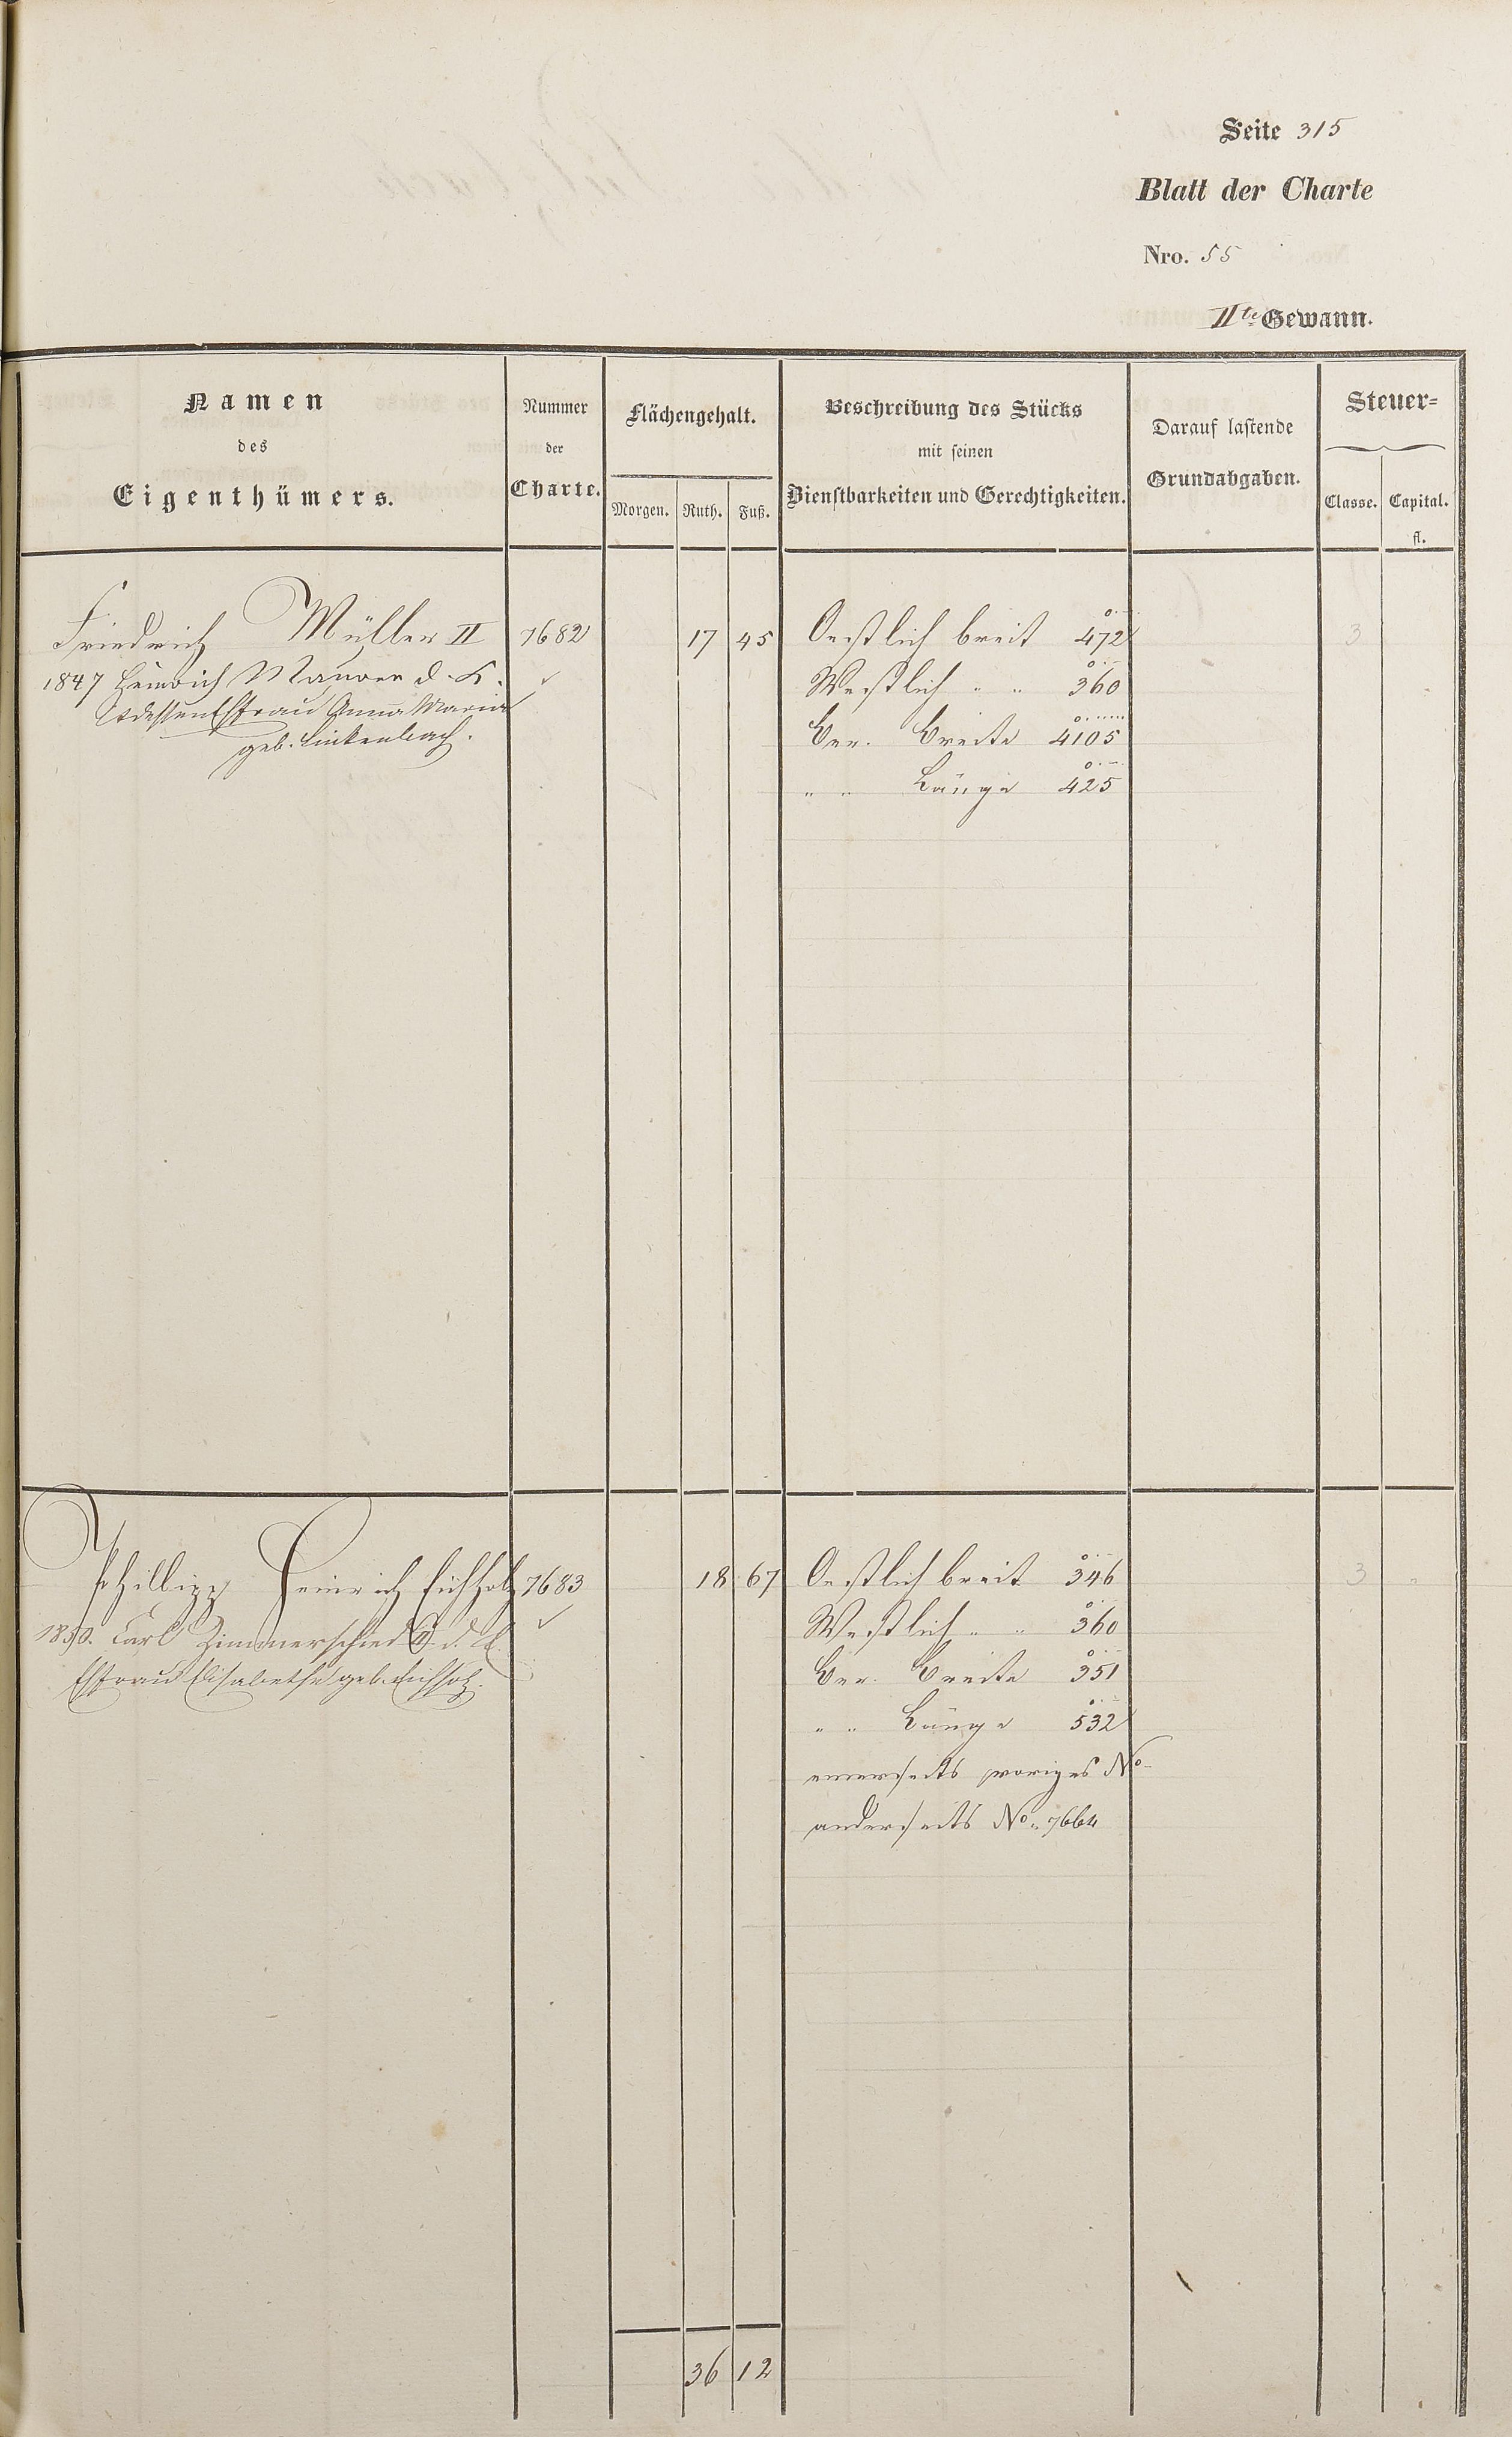 Seite 315
Blatt der Charte
Nro. 55
IIte Gewann.
Namen
des
Eigenthümers.
Nummer
der
Charte.
Flächengehalt.
Morgen. Ruth. Fuß.
Beschreibung des Stücks
mit seinen
Dienstbarkeiten und Gerechtigkeiten.
Darauf lastende
Grundabgaben.
Steuer=
Classe. Capital.
fl.
Friedrich Müller II 7682 17 45 Oestlich breit 472 3
1847 Heinrich Maurer d. K. Westlich " " 360
et dessen Ehfrau Anna Maria Ber. Breite 4105
geb. Linkenbach. " " Länge 425
Philipp Heinrich Eichholz 7683 18 67 Oestlich breit 346 3 "
1850. Carl Zimmerschied II. d. Westlich " " 360
Ehfrau Elisabethe geb. Eichholz. Ber. Breite 351
" " Länge 532
einerseits voriges No
anderseits No. 7664
36 12